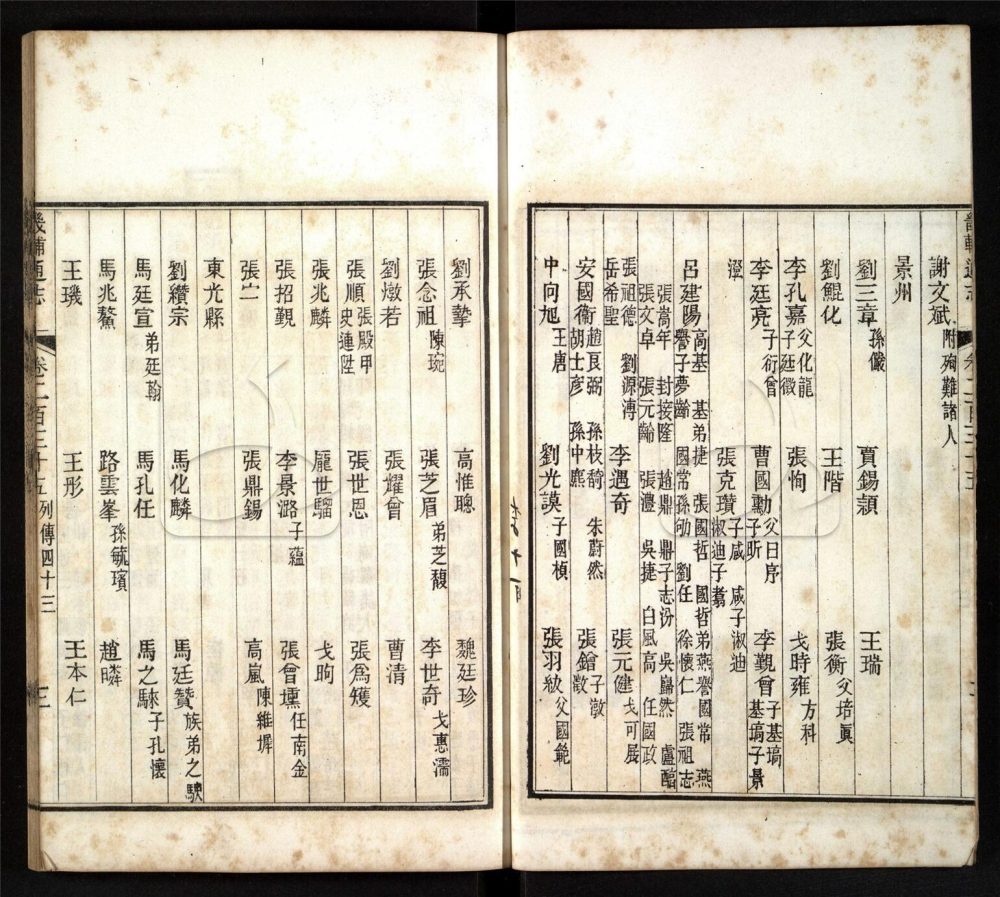 謝文斌 附殉難諸人
景州
劉三章 孫儼 賈錫穎 王瑞
劉鯤化 王階 張衡 父培眞
李孔嘉 父化龍 子廷徵 張恂 戈時雍 方科
李廷亮 子衍曾 曹國勳 父日序 子昕 李觀曾 子基塙 基塙子景
瀅 張克瓚 子咸 咸子淑迪 淑迪子翥
呂建陽 高基 基弟捷 張國哲 國哲弟燕譽 國常 燕譽子夢齡 國常孫勋 劉任 徐懷仁 張祖志
張嵩年 封接隆 趙鼎 鼎子志汾 吳巋然 盧醕 張文卓 張元齡 張灃 吳捷 白風高 任國政
張祖德 劉源漙 岳希聖 李遇奇 張元健 戈可展
安國衛 趙良弼 孫枝猗 朱蔚然 胡士彦 孫中麃 張鎗 子澂 澂
申向旭 王唐 劉光謨 子國楨 張羽紱 父國範
畿輔通志 卷二百三十五 列傳四十三 三
劉承摯 高惟聰 魏廷珍
張念祖 陳琬 張芝眉 弟芝馥 李世奇 戈惠濡
劉燉若 張耀曾 曹清
張順 張殿甲 史連陞 張世恩 張爲矱
張兆麟 龐世騮 戈昫
張招觀 李景潞 子蘊 張曾壎 任南金
張𡵆 張鼎錫 高嵐 陳維墀
東光縣
劉纘宗 馬化麟 馬廷贊 族弟之駛
馬廷宣 弟廷翰 馬孔任 馬之騋 子孔懷
馬兆鰲 路雲峯 孫毓璸 趙疄
王璣 王彤 王本仁